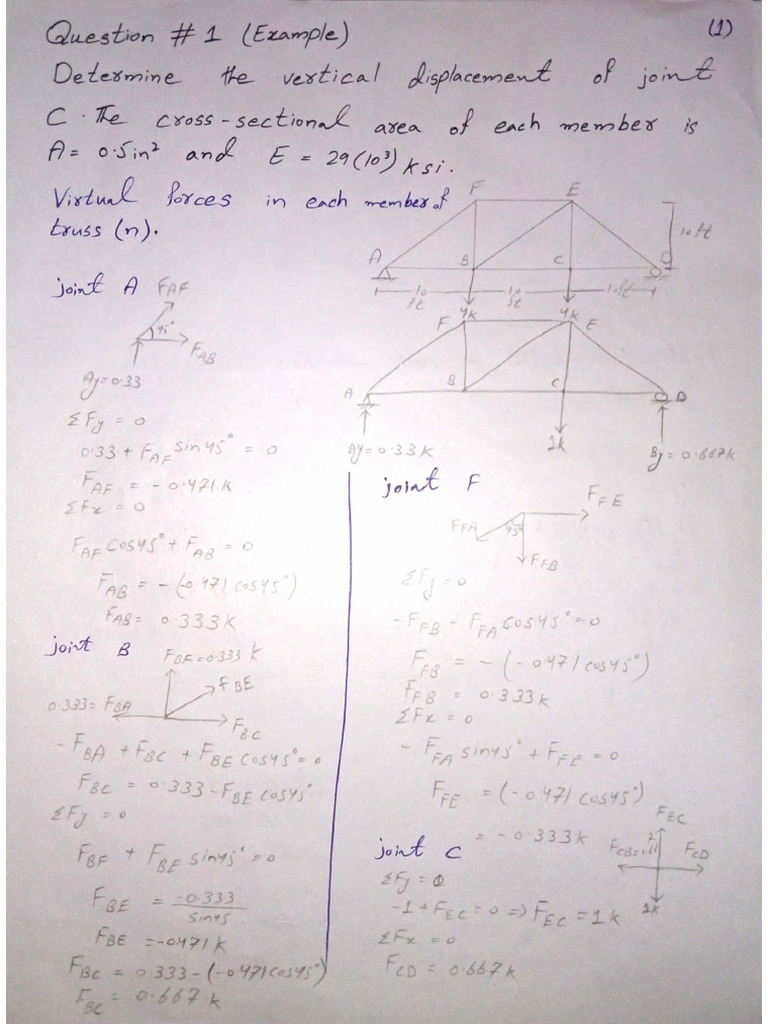 (1)
Question # 1 (Example)
Determine the vertical displacement of joint
C. The cross-sectional area of each member is
A= 0.5in² and E = 29(10³) ksi.
Virtual forces in each member of
truss (n).
F E
A B C
10ft
10 ft 10 ft 10ft
4k 4k
F E
A B C D
1k
Ay=0.33k By=0.667k
joint A
FAF
45°
FAB
Ay=0.33
ΣFy = 0
0.33 + FAF sin45° = 0
FAF = -0.471k
ΣFx = 0
FAF cos45° + FAB = 0
FAB = -(-0.471 cos45°)
FAB = 0.333k
joint B
FBF=0.333 k
FBE
0.333= FBA
FBC
-FBA + FBC + FBE cos45° = 0
FBC = 0.333 - FBE cos45°
ΣFy = 0
FBF + FBE sin45° = 0
FBE = -0.333/sin45
FBE = -0.471k
FBC = 0.333-(-0.471cos45°)
FBC = 0.667 k
joint F
FFE
FFA
45°
FFB
ΣFy = 0
-FFB - FFA cos45° = 0
FFB = -(-0.471cos45°)
FFB = 0.333k
ΣFx = 0
-FFA sin45° + FFE = 0
FFE = (-0.471 cos45°)
= -0.333k
joint C
FEC
FCD
1k
ΣFy = 0
-1 + FEC = 0 => FEC = 1k
ΣFx = 0
FCD = 0.667k